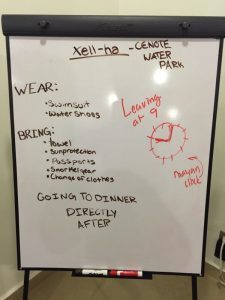 Xell-ha - CENOTE
WATER
PARK
WEAR:
• Swimsuit
• Water shoes
Leaving
at 9
BRING:
• towel
• sunprotection
• Passports
• Snorkel gear
• Change of clothes
mayan
clock
GOING TO DINNER
DIRECTLY
AFTER